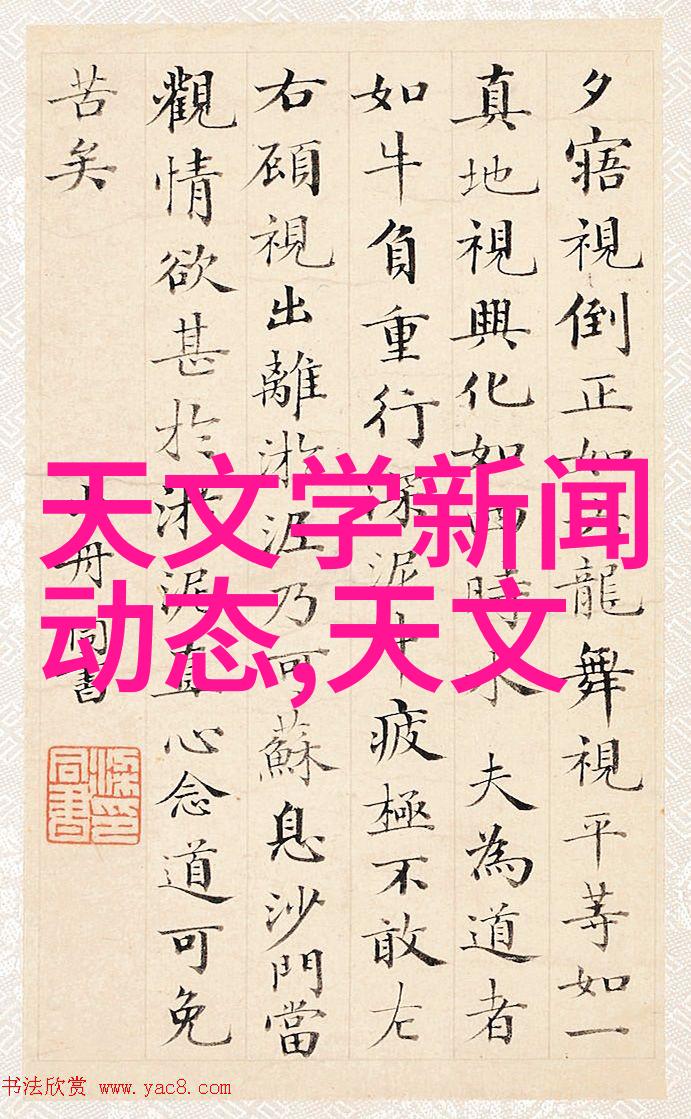 夕寤視倒正如龍舞視平等如一
真地視興化如四時木 夫為道者
如牛負重行深泥中疲極不敢左
右顧視出離淤泥乃可蘇息沙門當
觀情欲甚於淤泥直心念道可免
苦矣
山舟同書
天文学新闻
动态,天文
书法欣赏 www.yac8.com